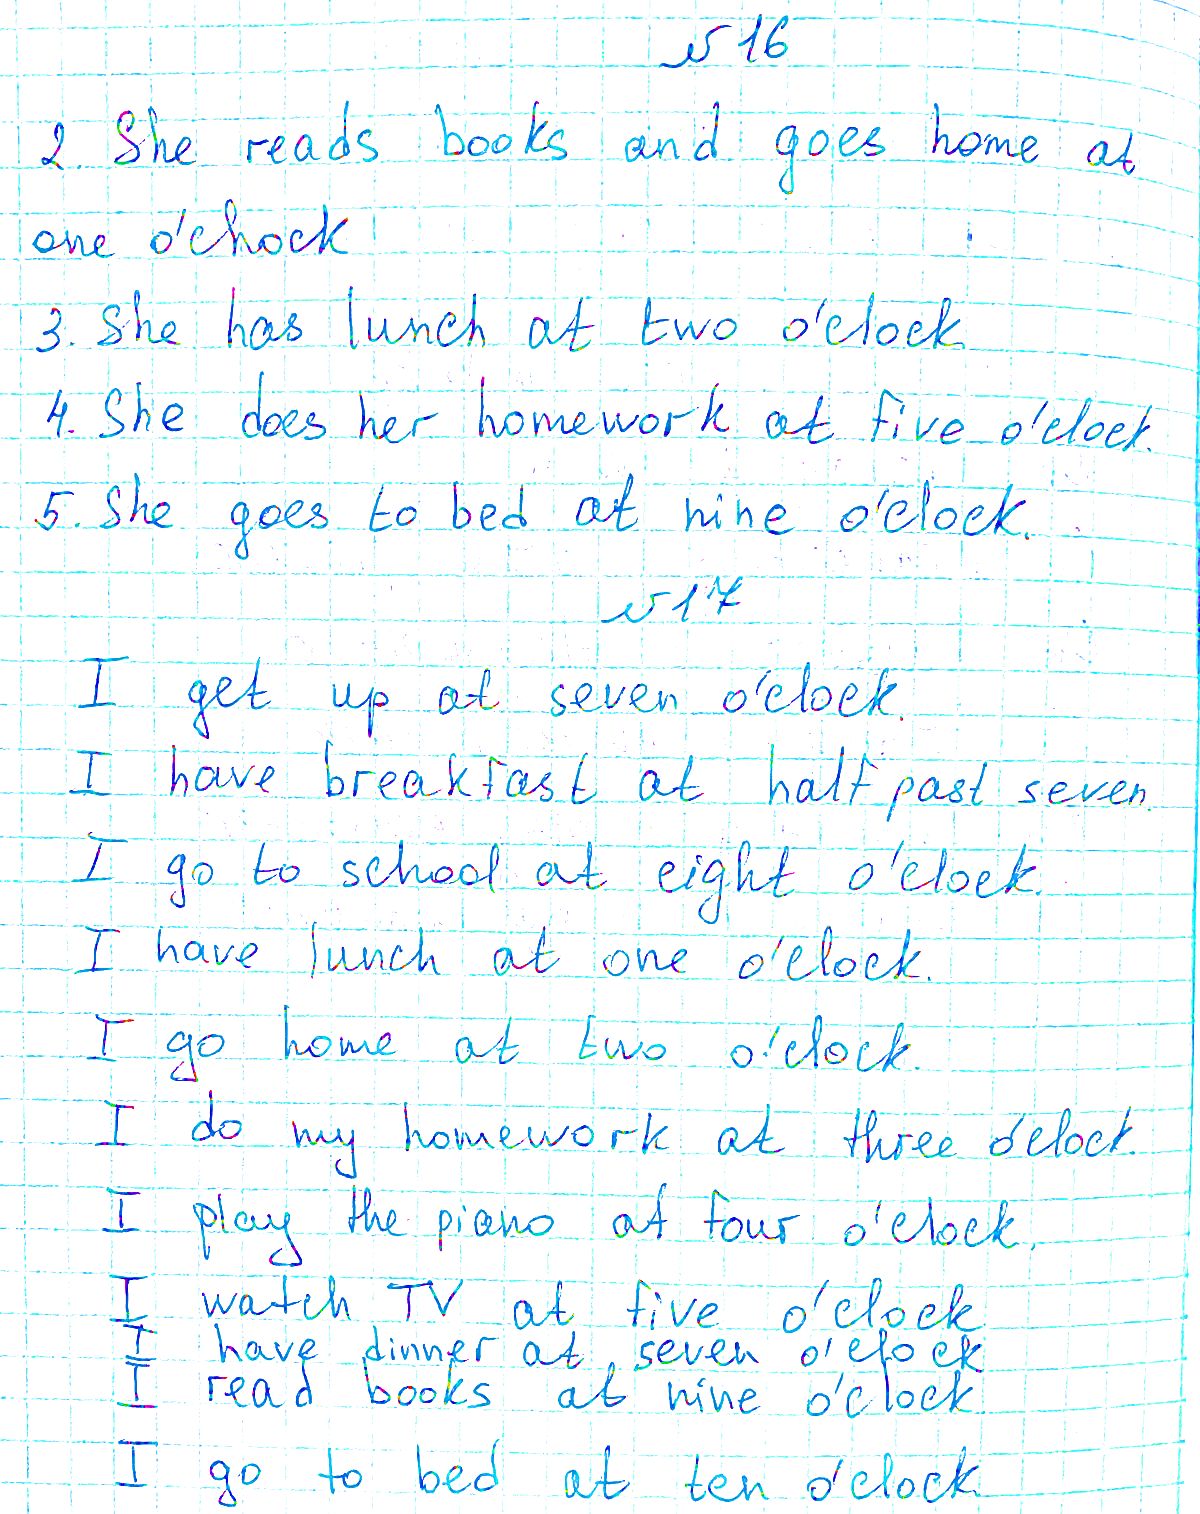 № 16
2. She reads books and goes home at
one o'chock
3. She has lunch at two o'clock
4. She does her homework at five o'clock.
5. She goes to bed at nine o'clock.
№ 17
I get up at seven o'clock.
I have breakfast at half past seven.
I go to school at eight o'clock.
I have lunch at one o'clock.
I go home at two o'clock.
I do my homework at three o'clock.
I play the piano at four o'clock.
I watch TV at five o'clock
I have dinner at seven o'clock
I read books at nine o'clock
I go to bed at ten o'clock.